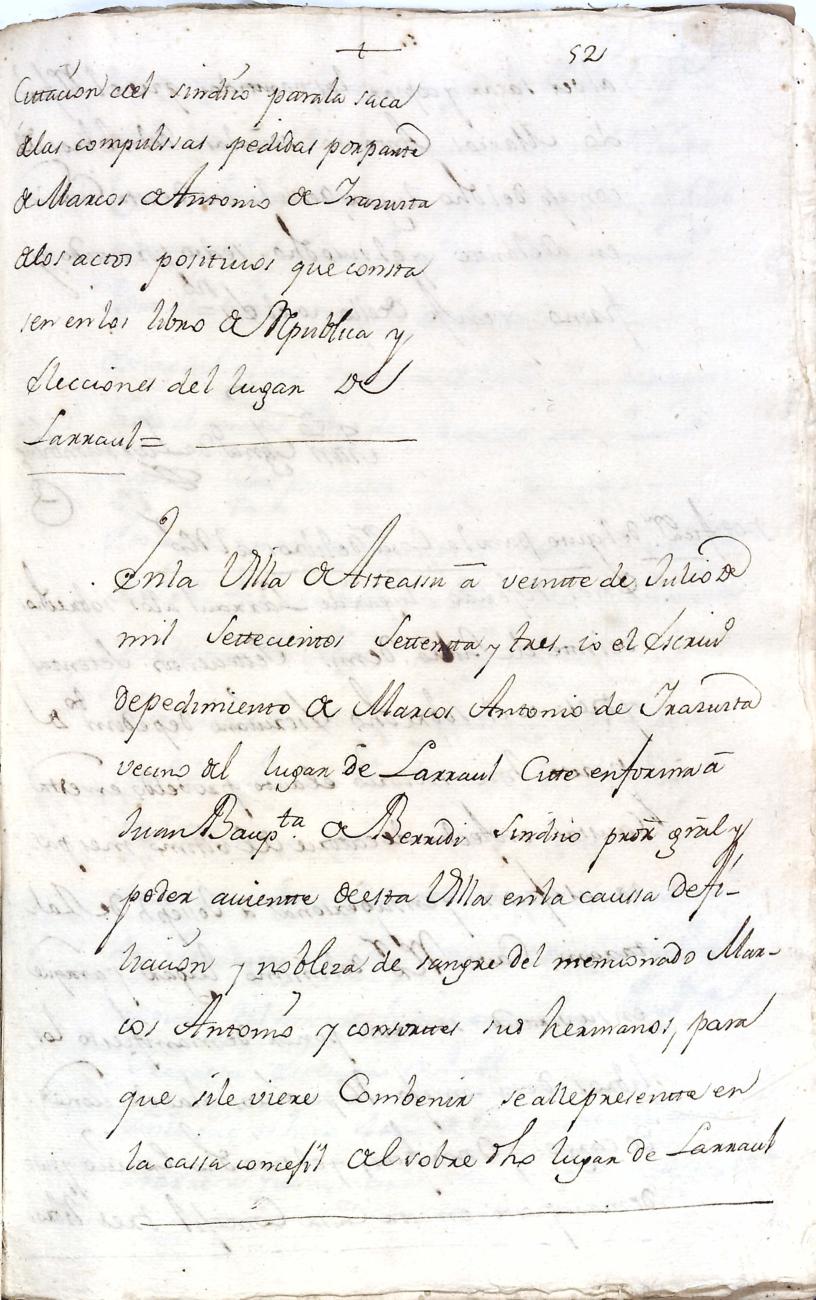 52
Cittacion del sindico parala saca
delas compulssas pedidas porparte
de Marcos de Antonio de Irazusta
delos actos positiuos que consta
sen enlos libro de Rpublica y
Elecciones del lugar de
Larraul=
Enla Villa de Asteassu â veintte de Julio de
mil Settecientos Settentta y tres, io el Escriuo
depedimiento de Marcos Antonio de Irazusta
vecino del lugar de Larraul Citte enforma â
Juan Baupta de Berridi Sindico proR gral y
poder auientte deesta Villa enla caussa defi-
liacion y nobleza de sangre del mencionado Mar-
cos Antonio y consortes sus hermanos, para
que sile viere Combenir se allepresentte en
la cassa concejil del sobre dho lugar de Larraul